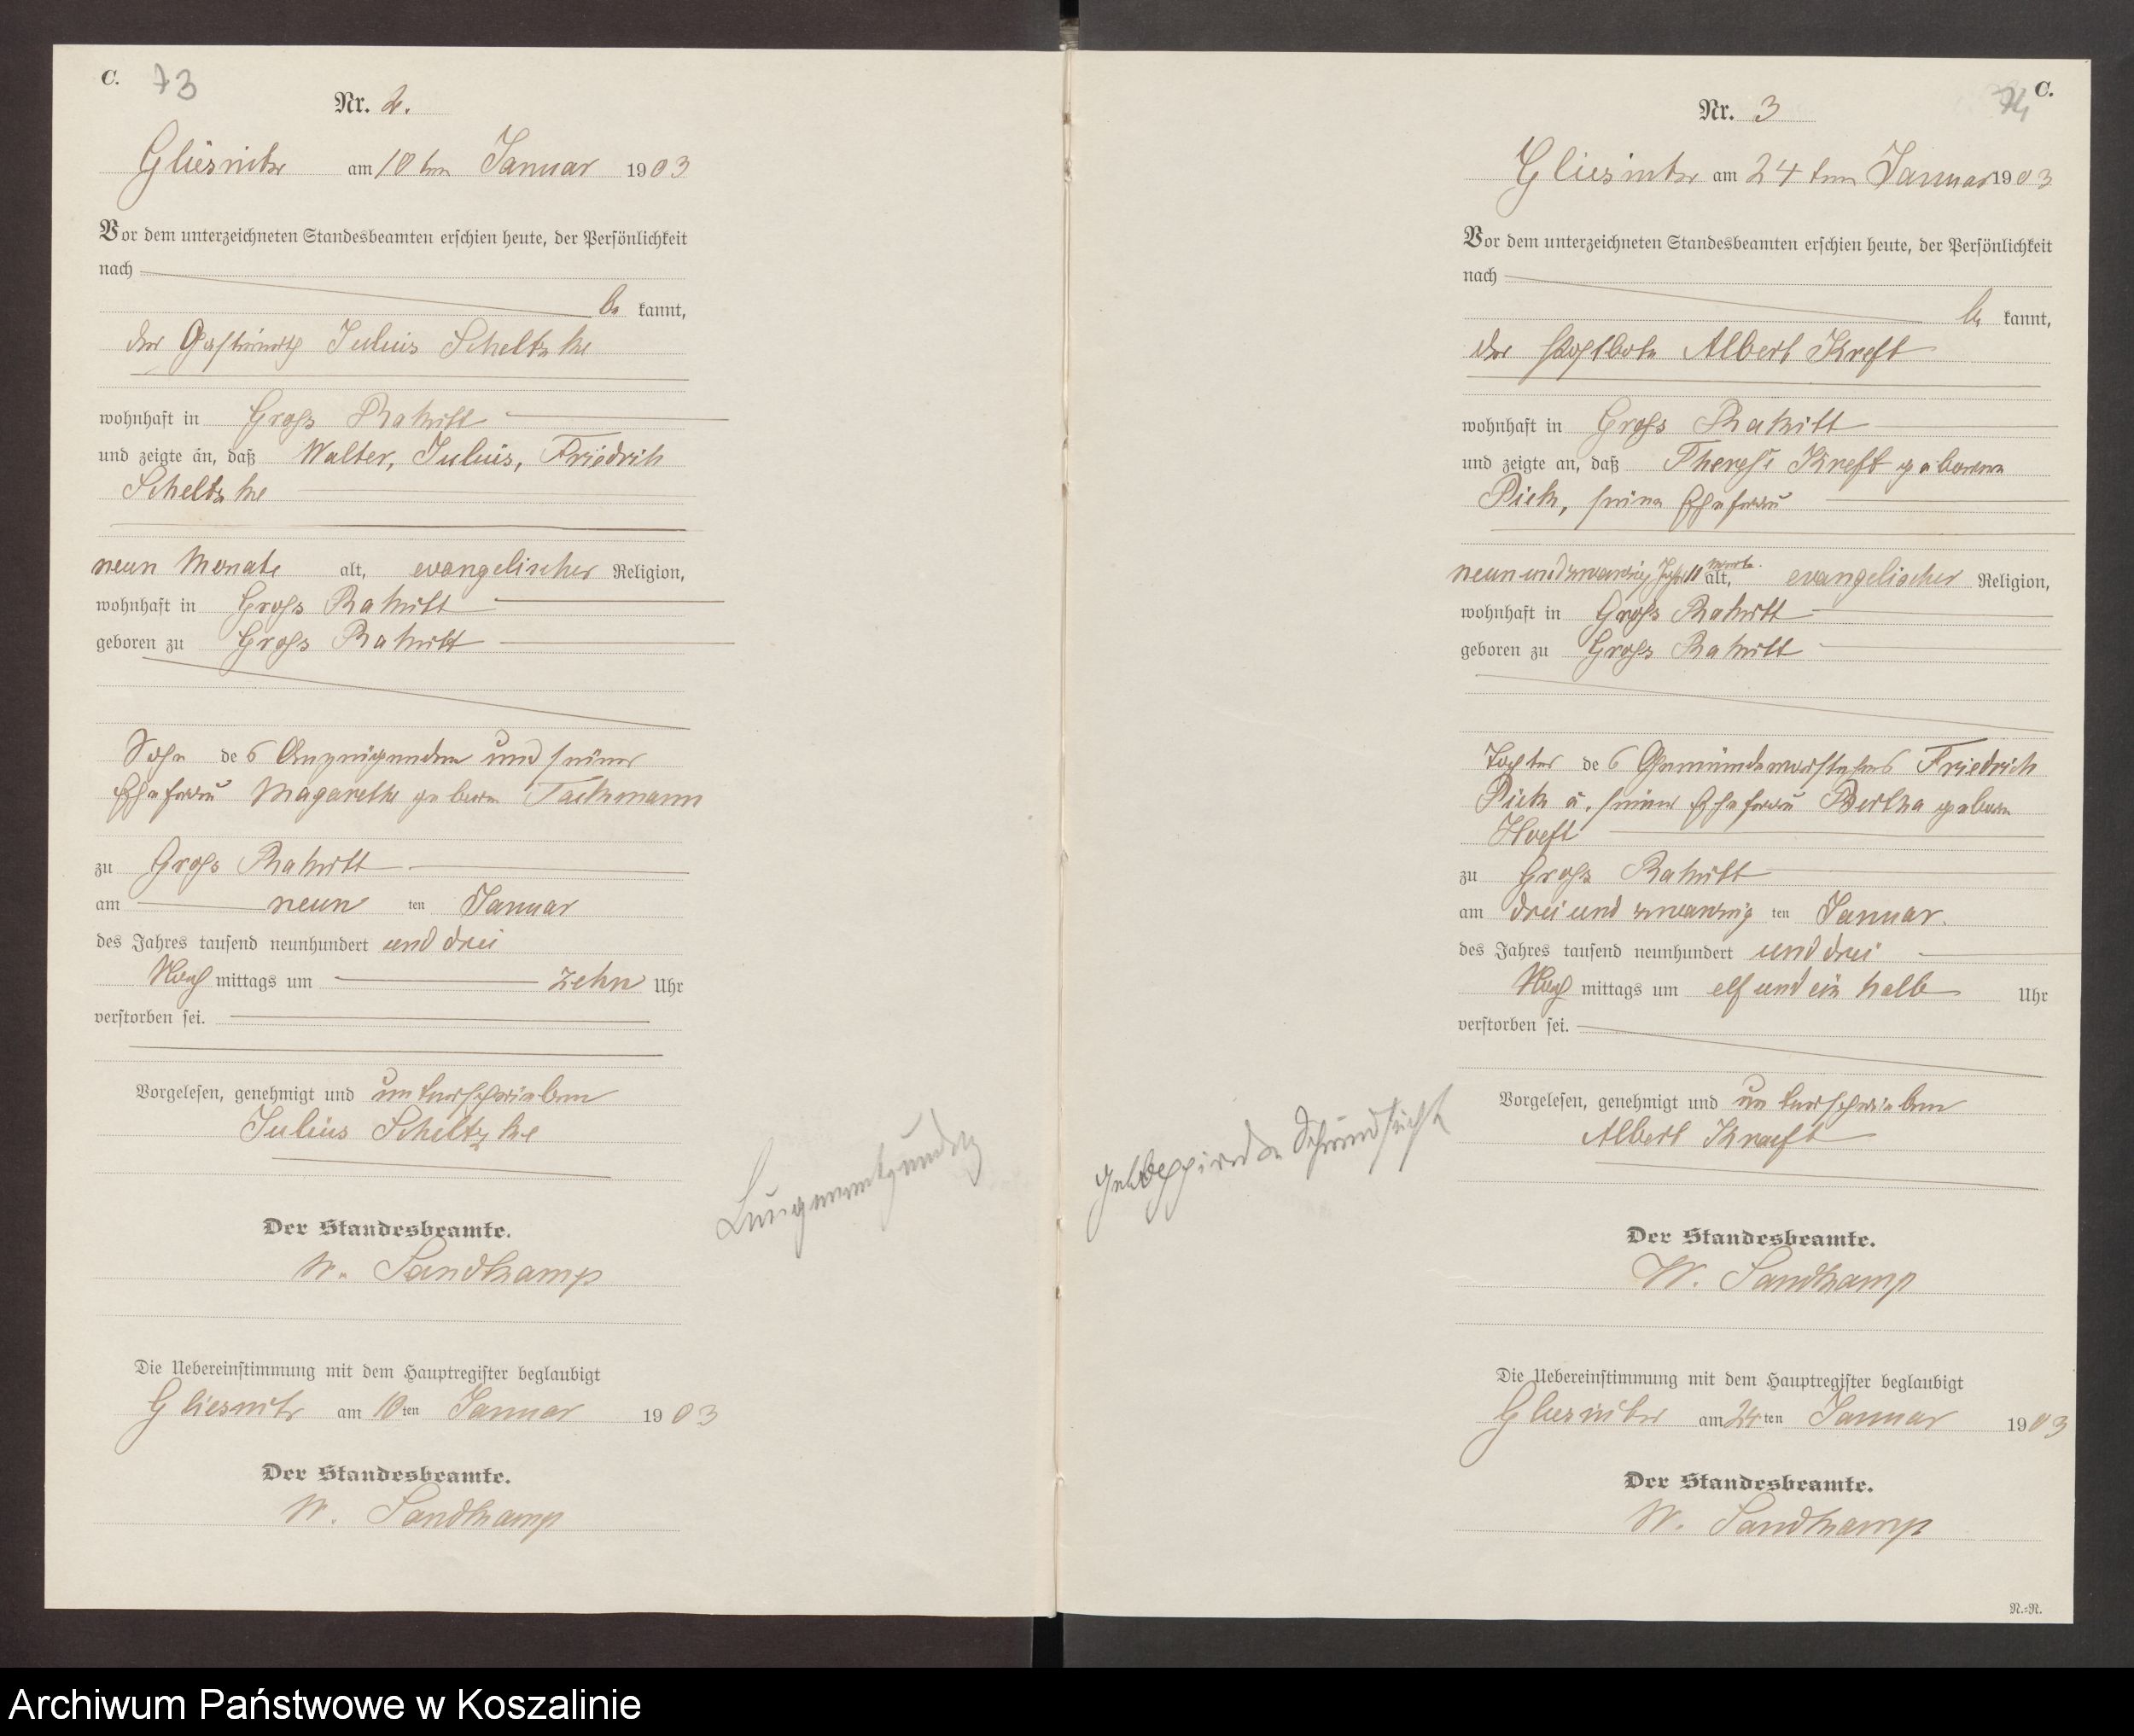 C. 73
Nr. 2.
Gliesnitz am 10 ten Januar 1903
Vor dem unterzeichneten Standesbeamten erschien heute, der Persönlichkeit
nach
be kannt,
der Gastwirth Julius Scheltzke
wohnhaft in Gross Rakitt
und zeigte an, daß Walter, Julius, Friedrich
Scheltzke
neun Monate alt, evangelischer Religion,
wohnhaft in Gross Rakitt
geboren zu Gross Rakitt
Sohn des Anzeigenden und seiner
Ehefrau Magarethe geboren Tackmann
zu Gross Rakitt
am neun ten Januar
des Jahres tausend neunhundert und drei
Nach mittags um zehn Uhr
verstorben sei.
Vorgelesen, genehmigt und unterschrieben
Julius Scheltzke
Lungenentzündg
Der Standesbeamte.
W. Sandkamp
Die Uebereinstimmung mit dem Hauptregister beglaubigt
Gliesnitz am 10ten Januar 1903
Der Standesbeamte.
W. Sandkamp
74 C.
Nr. 3
Gliesnitz am 24 ten Januar 1903
Vor dem unterzeichneten Standesbeamten erschien heute, der Persönlichkeit
nach
be kannt,
der Postbote Albert Kreft
wohnhaft in Gross Rakitt
und zeigte an, daß Therese Kreft geborene
Pieh, seine Ehefrau
neunundzwanzig Jahr 11 Monate alt, evangelischer Religion,
wohnhaft in Gross Rakitt
geboren zu Gross Rakitt
Tochter des Gemeindevorstehers Friedrich
Pieh u. seiner Ehefrau Bertha geboren
Hoeft
zu Gross Rakitt
am drei und zwanzig ten Januar.
des Jahres tausend neunhundert und drei
Nach mittags um elf und ein halb Uhr
verstorben sei.
Vorgelesen, genehmigt und unterschrieben
Albert Kraeft
Schwindsucht
Der Standesbeamte.
W. Sandkamp
Die Uebereinstimmung mit dem Hauptregister beglaubigt
Gliesnitz am 24ten Januar 1903
Der Standesbeamte.
W. Sandkamp
N.=N.
Archiwum Państwowe w Koszalinie